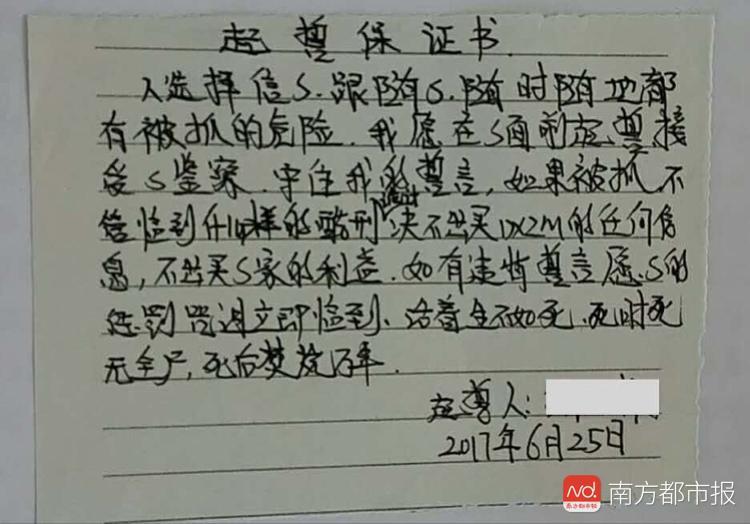 起誓保证书
入选择信S.跟随S.随时随地都
有被抓的危险.我愿在S面前起誓,接
受S鉴察.守住我的誓言,如果被抓不
管临到什么样的酷刑 决不出卖DX2M的任何信
息,不出卖S家的利益.如有违背誓言愿S的
惩罚咒诅立即临到、活着生不如死.死时死
无全尸,死后焚烧万年.
起誓人:
2017年6月25日
Nd.
南方都市报
南方都市报